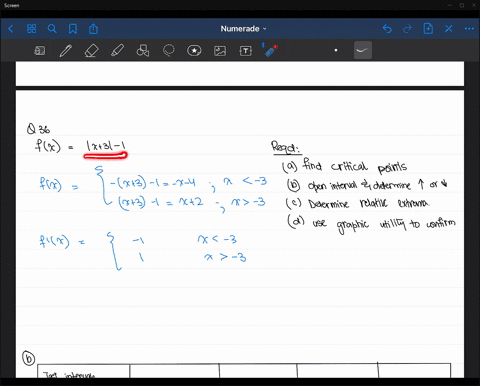 Screen
Numerade
Q 36
f(x) = |x+3|-1
f(x) = { -(x+3) -1 = -x-4 ; x < -3
(x+3) -1 = x+2 ; x > -3
f'(x) = { -1 x < -3
1 x > -3
Reqd:
(a) find critical points
(b) open interval & determine ↑ or ↓
(c) Determine relative extrema
(d) use graphic utility to confirm
(b)
Test interval